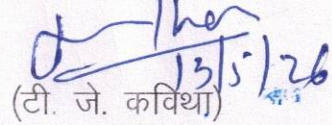 13/5/26
(टी. जे. कविथा)